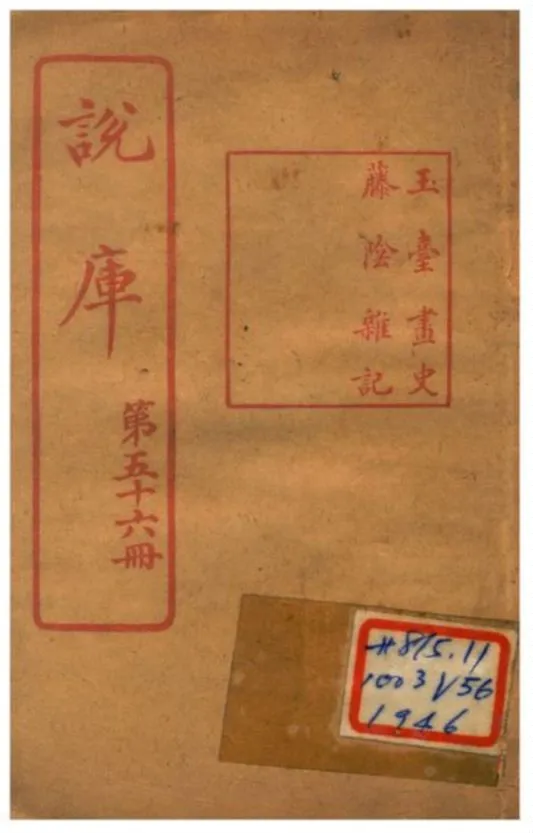 玉臺畫史
藤陰雜記
說庫
第五十六冊
#815.11
1003 V56
1946